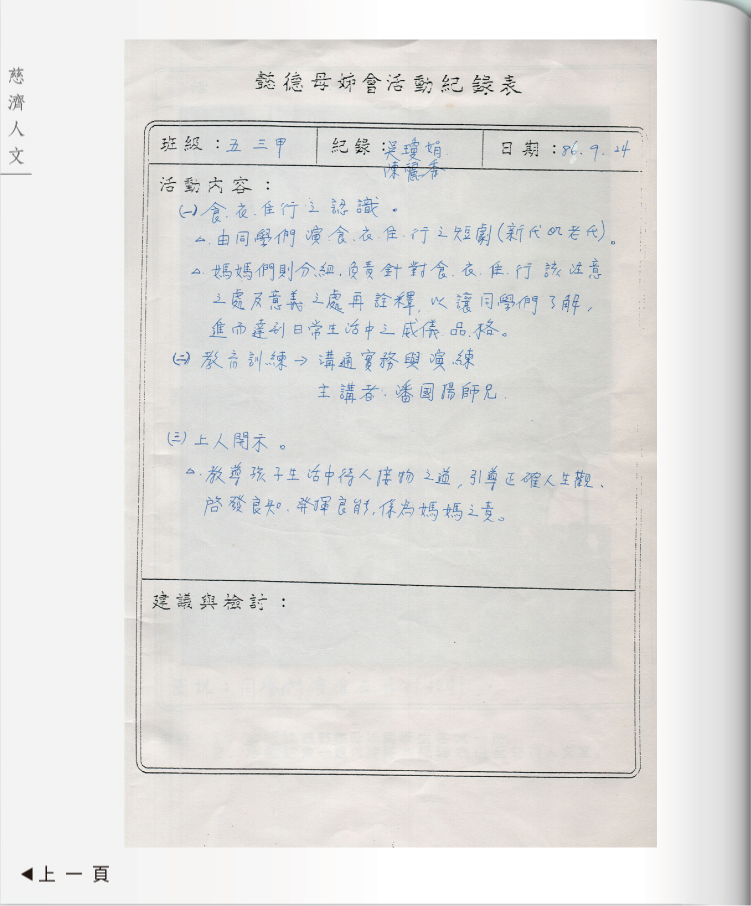 慈濟人文
懿德母姊會活動紀錄表
班級：五 三甲
紀錄：吳瓊娟
陳麗香
日期：86.9.24
活動內容：
(一)食.衣.住.行之認識。
△.由同學們演食.衣.住.行之短劇(新代的老氏)。
△.媽媽們則分組.負責針對食.衣.住.行該注意
之處及意義之處再詮釋,以讓同學們了解,
進而達到日常生活中之威儀.品.格。
(二)教育訓練→溝通實務與演練
主講者.潘國揚師兄.
(三)上人開示。
△.教導孩子生活中待人接物之道,引導正確人生觀、
啓發良知.發揮良能,係為媽媽之責。
建議與檢討：
◀上一頁